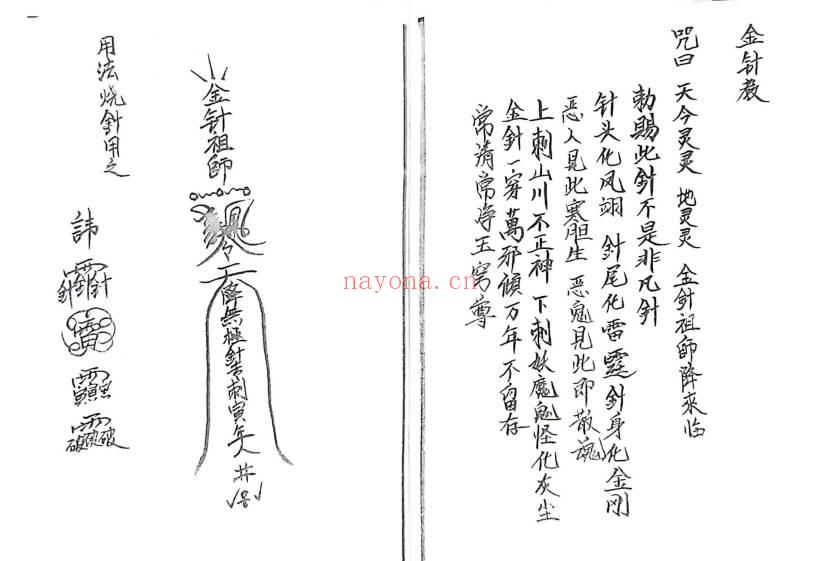 金针教
咒曰 天今灵灵 地灵灵 金針祖師降來临
勅賜此針不是非凡針
针头化凤翊 針尾化雷霆 針身化金剛
恶人見此寒胆生 恶鬼見此即散魂
上刺山川不正神 下刺妖魔鬼怪化灰尘
金針一穿萬邪傾万年不留存
常清常净玉穹尊
金针祖師
天降無極針
刺寅年人
井
用法烧針用之
諱
nayona.cn